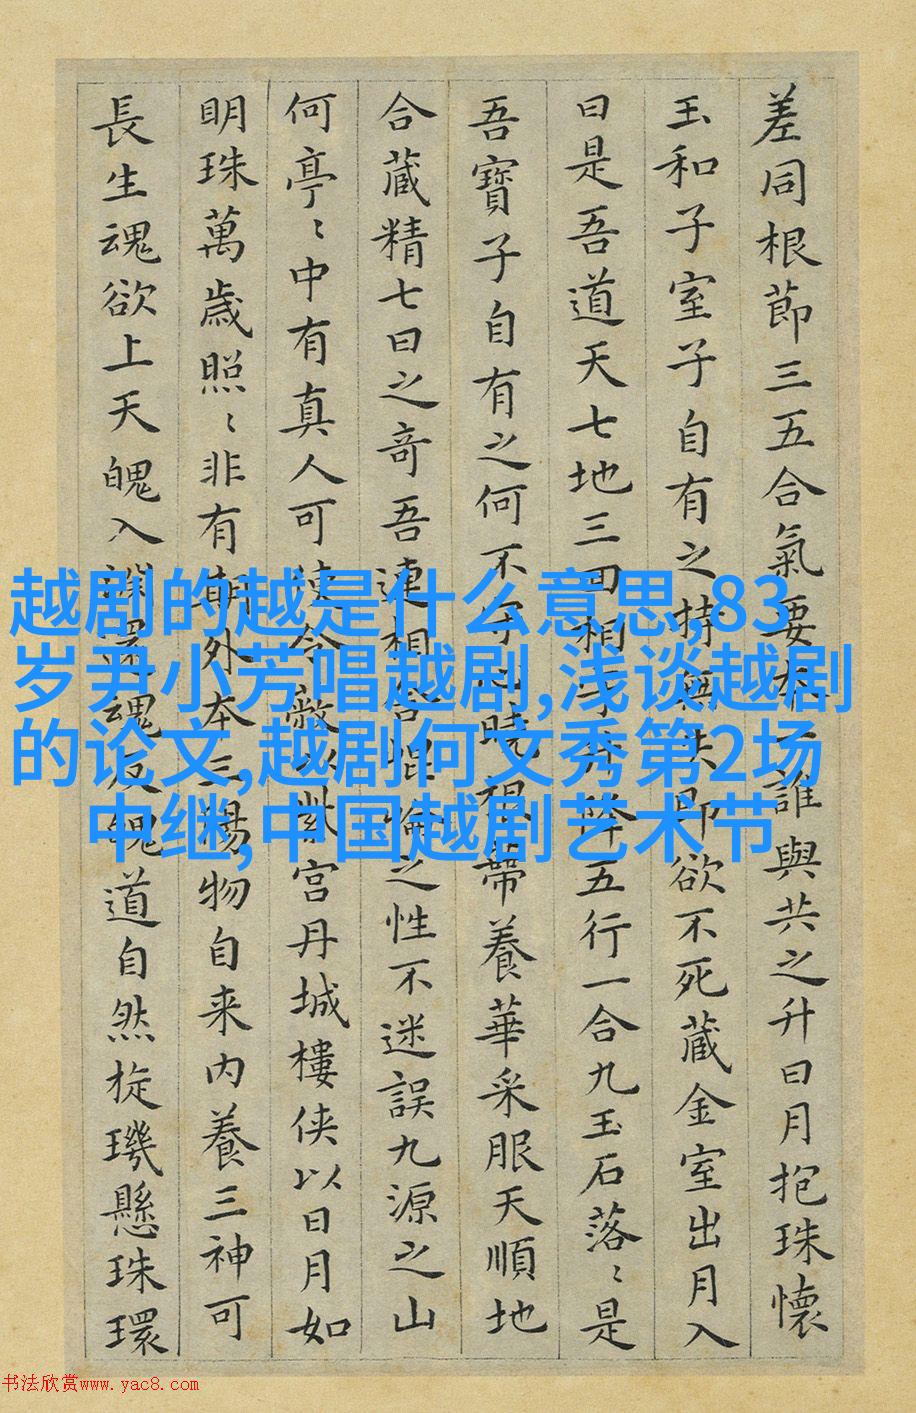 差同根節三五合氣要本一誰與共之升日月抱珠懷
玉和子室子自有之持無失即欲不死藏金室出月入
日是吾道天七地三回相守升降五行一合九玉石落〻是
吾寶子自有之何不守心曉根蔕養華采服天順地
合藏精七日之奇吾連相合崐崘之性不迷誤九源之山
何亭〻中有真人可使令蔽以紫宮丹城樓俠以日月如
明珠萬歲照〻非有期外本三陽物自来内養三神可
長生魂欲上天魄入淵還魂反魄道自然旋璣懸珠環
越剧的越是什么意思,83
岁尹小芳唱越剧,浅谈越剧
的论文,越剧何文秀第2场
中继,中国越剧艺术节
书法欣赏www.yac8.com